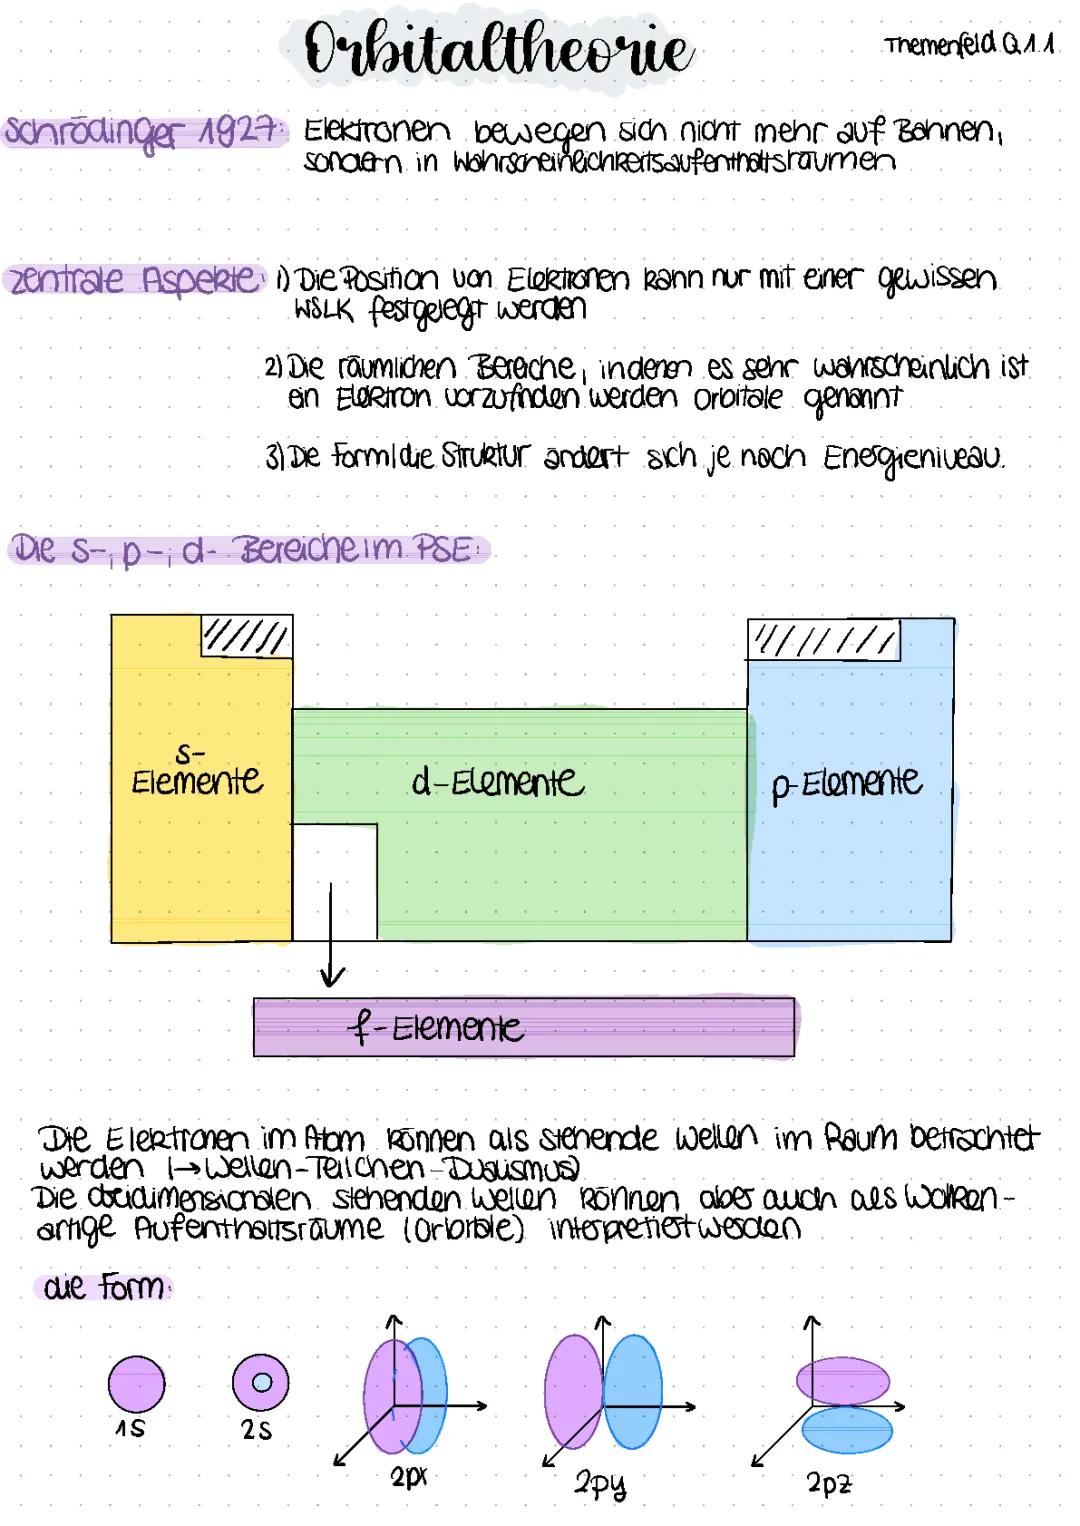 Orbitaltheorie
Themenfeld Q.1.1
Schrödinger 1927: Elektronen bewegen sich nicht mehr auf Bahnen,
sondern in Wahrscheinlichkeitsaufenthaltsräumen
zentrale Aspekte: 1) Die Position von Elektronen kann nur mit einer gewissen
WSLK festgelegt werden
2) Die räumlichen Bereiche, in denen es sehr wahrscheinlich ist
ein Elektron vorzufinden werden Orbitale genannt
3) Die Form/die Struktur ändert sich je nach Energieniveau.
Die s-, p-, d- Bereiche im PSE:
s-
Elemente
d-Elemente
p-Elemente
f-Elemente
Die Elektronen im Atom können als stehende Wellen im Raum betrachtet
werden (→Wellen-Teilchen-Dualismus)
Die dreidimensionalen stehenden Wellen können aber auch als Wolken-
artige Aufenthaltsräume (Orbitale) interpretiert werden
die Form:
1s
2s
2px
2py
2pz